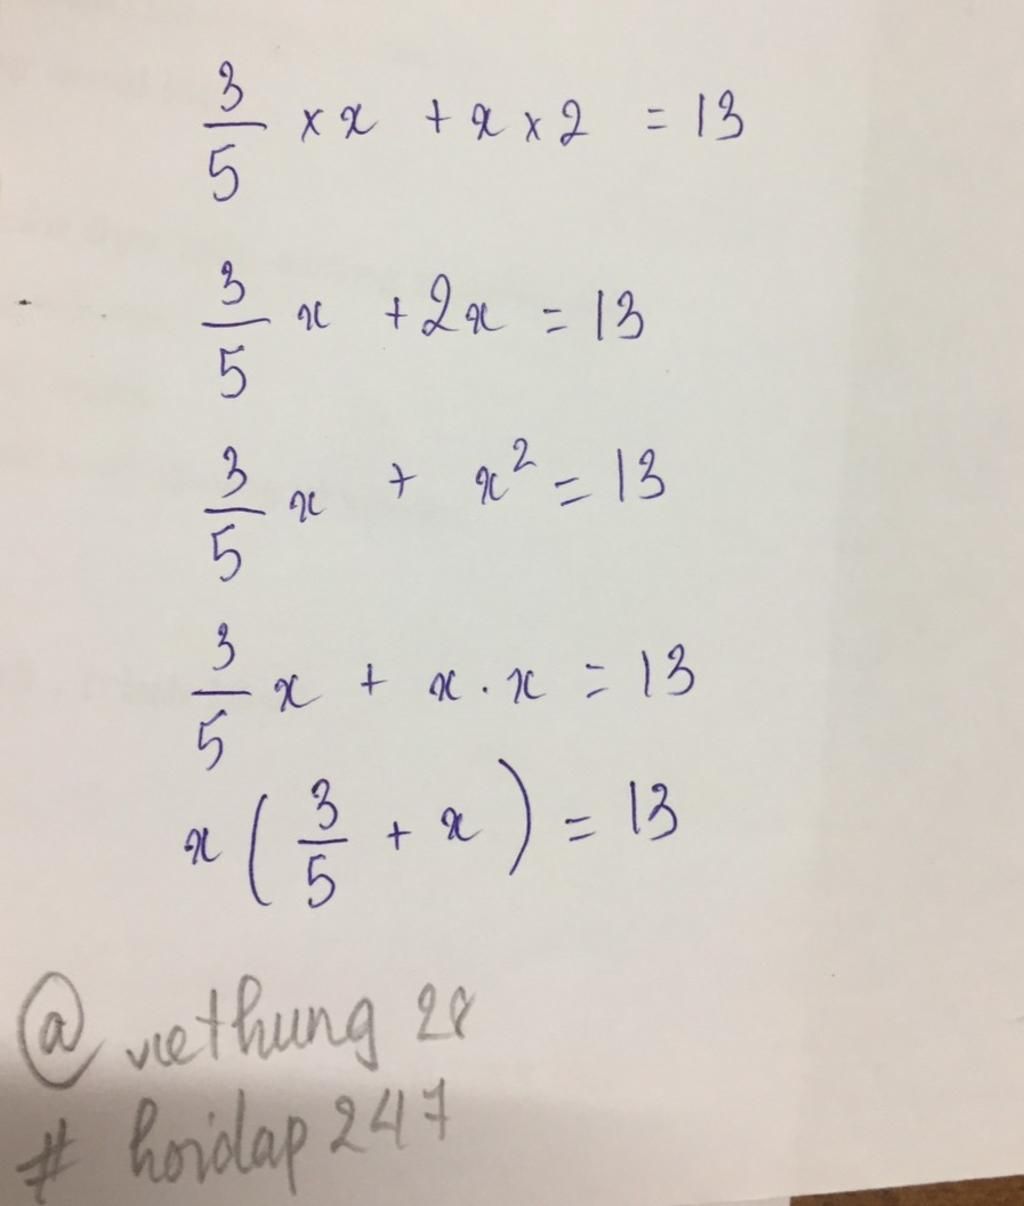 3/5 × x + x × 2 = 13
3/5 x + 2x = 13
3/5 x + x² = 13
3/5 x + x . x = 13
x ( 3/5 + x ) = 13
@ viethung 28
# hoidap 247